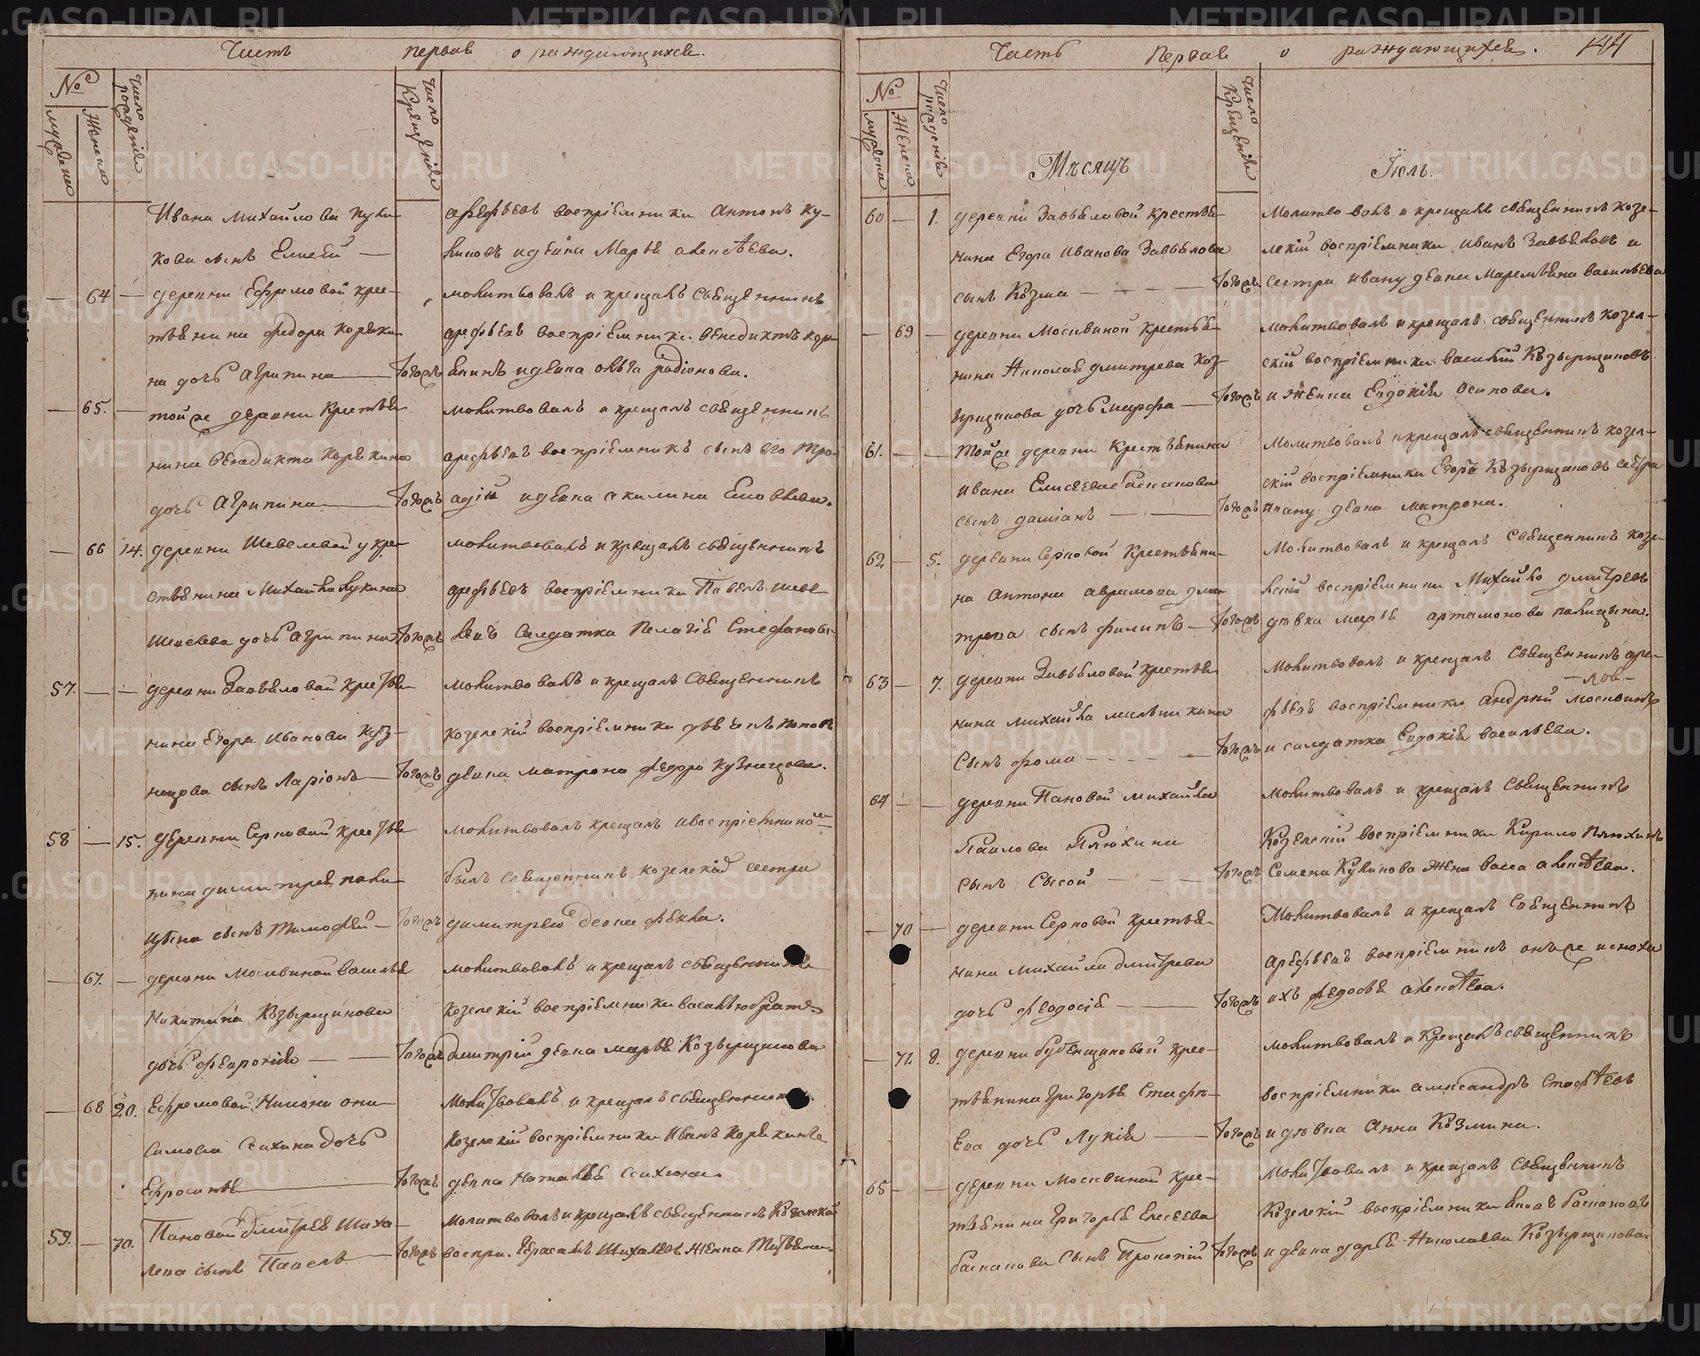 Часть первая о раждающихся.
№
мужеска
женска
Число рожденія
Число крещенія
Ивана Михайлова
кова сынъ Елисей
арефьевъ воспріемники Антонъ Ку-
киновъ и девка Марья алексѣева.
64 деревни Ефремовой крес-
тьянина Федора Корякина
на дочь Агрипина тогожъ
молитвовалъ и крещалъ священникъ
арефьевъ воспріемники Венедиктъ Кор-
якинъ и девка Радіонова.
65. той же деревни крестья-
нина Венедикта Корякина
дочь Агрипина тогожъ
молитвовалъ и крещалъ священникъ
арефьевъ воспріемникъ сынъ его
адій и девка акилина
66 14. деревни Шевелевой у кре-
стьянина Михайла Лукина
Шевелева дочь Агрипина тогожъ
молитвовалъ и крещалъ священникъ
арефьевъ воспріемники Павелъ Шеве-
левъ Салдатка Пелагія Стефанова
57. деревни Завьяловой крестья-
нина Егора Иванова Куз-
нецова сынъ Ларіонъ тогожъ
молитвовалъ и крещалъ священникъ
козелскій воспріемники
девка матрона федора Кузнецова.
58 15. деревни Серковой крестья-
нина димитрія паки-
цына сынъ Тимофей тогожъ
молитвовалъ крещалъ и воспріемникомъ
былъ священникъ козелскій сестра
димитрею девка фекла.
67. деревни Москвиной василья
Никитина Козырщикова
дочь Февронія тогожъ
молитвовалъ и крещалъ священникъ
козелскій воспріемники василью братъ
Дмитрій девка марья Козырщикова
68 20. Ефремовой
дочь
Ефросинья тогожъ
молитвовалъ и крещалъ священникъ
козелскій воспріемники Иванъ Корякинъ
девка Наталья
59. 30. Пановой Дмитрея Миха-
лева сынъ Павелъ тогожъ
молитвовалъ и крещалъ священникъ Козелскій
воспри. Герасимъ Михалевъ женка
Часть Первая о раждающихся. 144
№
мужеска
женска
Число рожденія
Число крещенія
Мѣсяцъ Іюль.
60 1. деревни Завьяловой крестья-
нина Егора Иванова Завьялова
сынъ Козма тогожъ
молитвовалъ и крещалъ священникъ козе-
лскій воспріемники иванъ Завьяловъ и
сестра ивану девка Маремьяна васильева
69 деревни Москвиной крестья-
нина Николая дмитрева Коз-
ырщикова дочь Марфа тогожъ
молитвовалъ и крещалъ священникъ козел-
скій воспріемники василій Козырщиковъ
и женка Евдокія Осипова.
61. Той же деревни Крестьянина
ивана Елисеева баскакова
сынъ даміанъ тогожъ
молитвовалъ и крещалъ священникъ козел-
скій воспріемники Егоръ Козырщиковъ сестра
ивану девка матрона.
62 5. деревни Серковой крестьяни-
на антона аврамова дми-
трева сынъ филипъ тогожъ
молитвовалъ и крещалъ священникъ козе-
лскій воспріемники Михайло дмитревъ
девка марья артамонова пакицына.
63 7. деревни Завьяловой крестья-
нина михайла мелникина
сынъ фома тогожъ
молитвовалъ и крещалъ священникъ аре-
фьевъ воспріемники андрей москвинъ
и салдатка Евдокія васильева.
64 деревни Пановой михайла
Павлова Плюхина
сынъ Сысой тогожъ
молитвовалъ и крещалъ священникъ
Козелскій воспріемники Кирило Плюхинъ
Семена Кукинова жена васса алексѣева.
70 деревни Серковой крестья-
нина михайла дмитрева
дочь Феодосія тогожъ
молитвовалъ и крещалъ священникъ
арефьевъ воспріемникъ
ихъ федосья алексѣева.
71 8. деревни бубенщиковой крес-
тьянина Григорья Стафѣ-
ева дочь Лукія тогожъ
молитвовалъ и крещалъ священникъ
воспріемники александръ Стафѣевъ
и девка Анна Козмина.
65 деревни Москвиной кре-
стьянина Григорья Елесеева
баскакова сынъ Прокопій тогожъ
молитвовалъ и крещалъ священникъ
Козелскій воспріемники Баскаковъ
и девка дарья Николаева Козырщикова